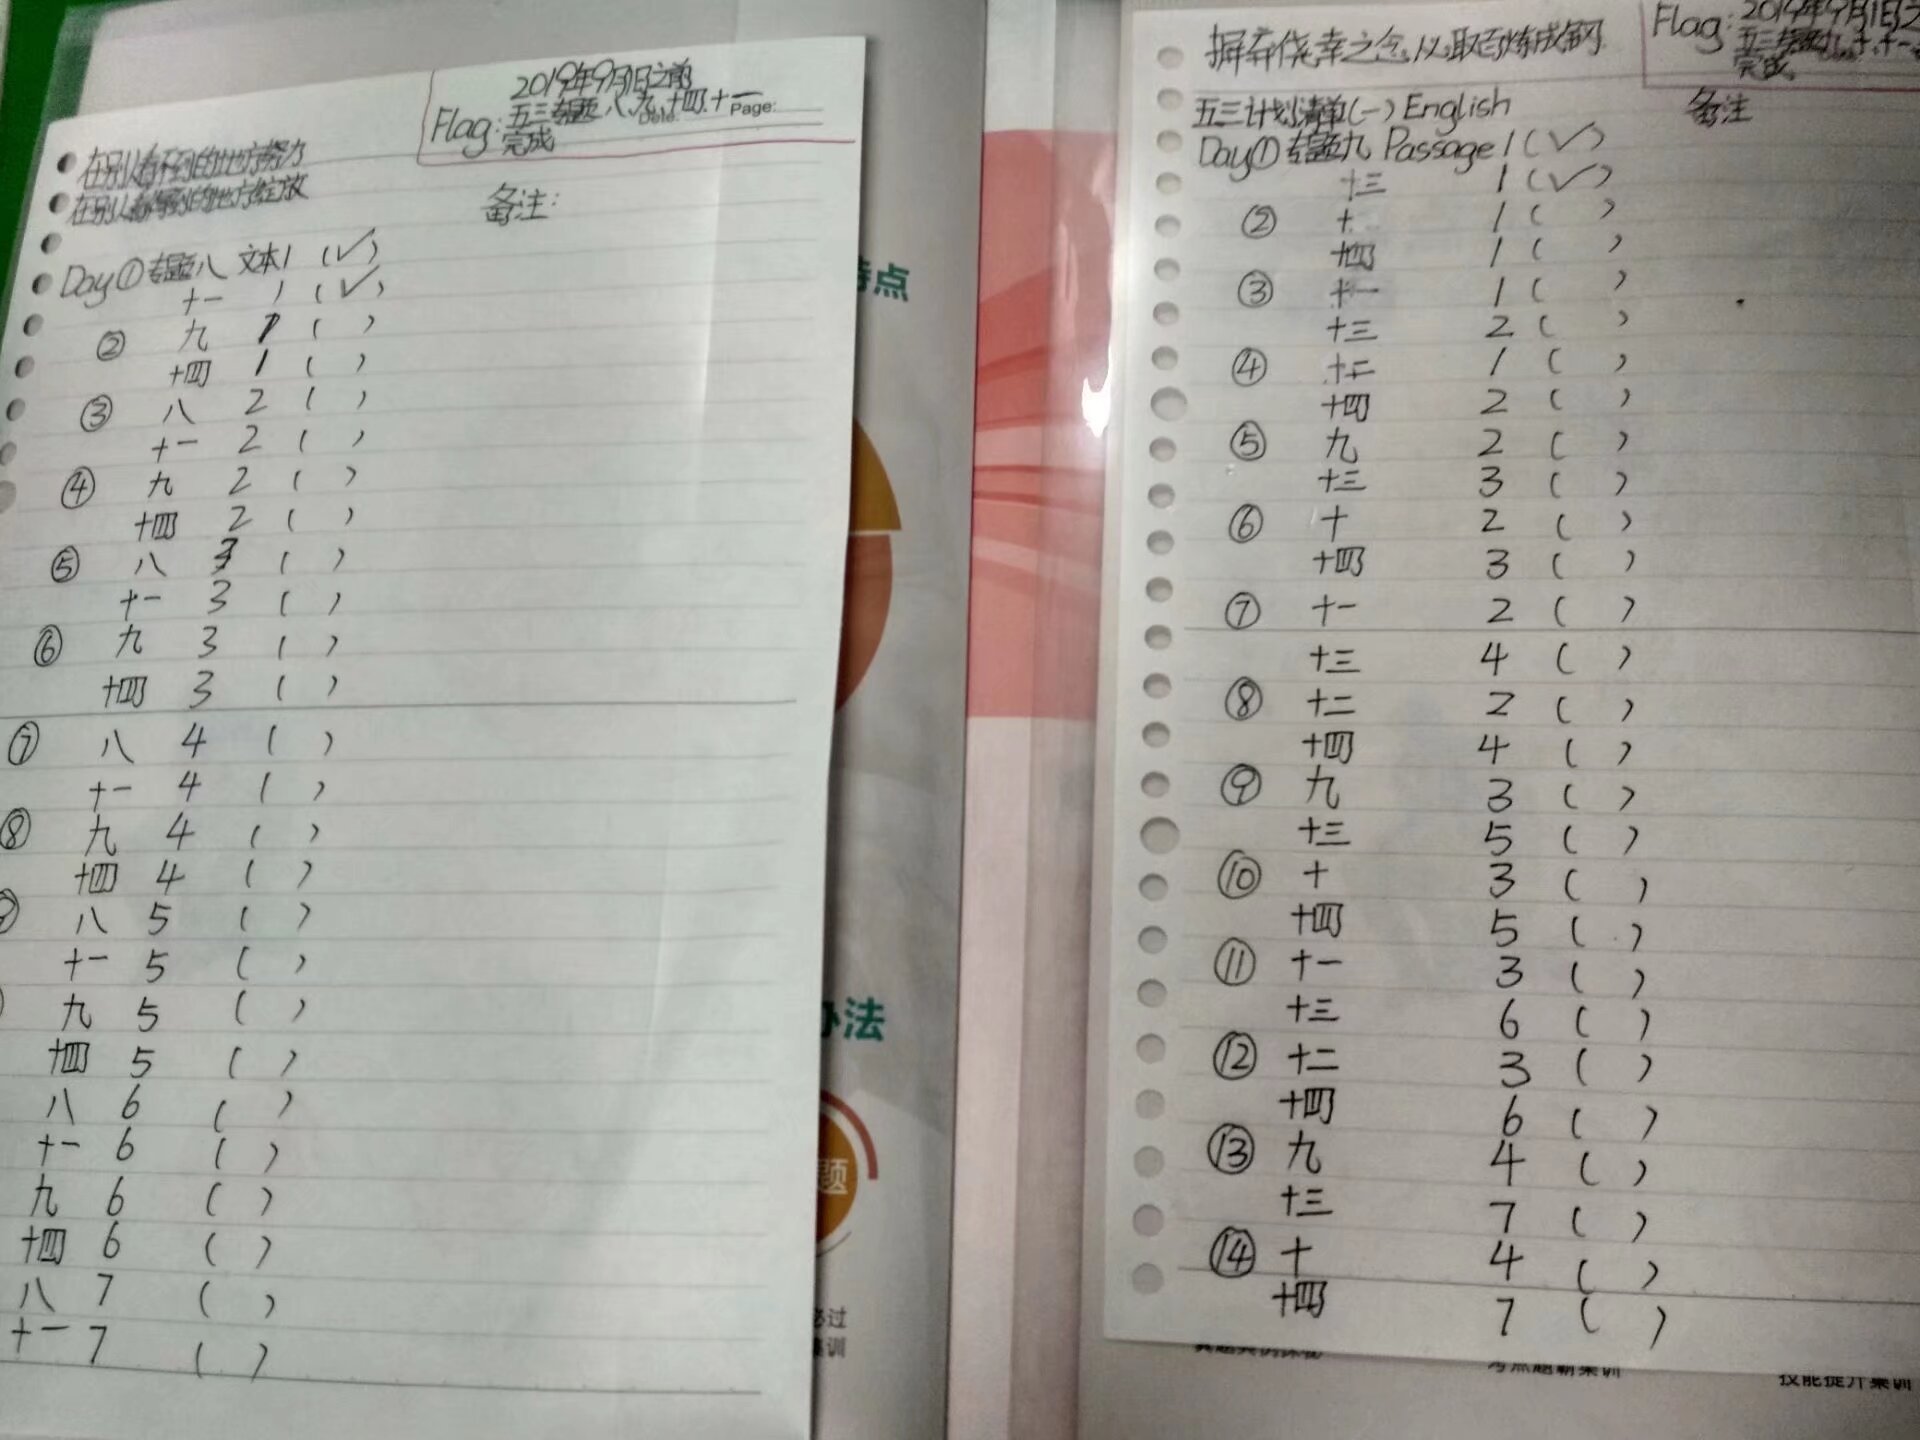 2019年9月1日之前
Flag: 五三专题八、九、十四、十一
Date: Page:
完成
在别人看不到的地方努力
在别人看得到的地方绽放
备注:
Day① 专题八 文本1 (✓)
十一 1 (✓)
② 九 1 ( )
十四 1 ( )
③ 八 2 ( )
十一 2 ( )
④ 九 2 ( )
十四 2 ( )
⑤ 八 3 ( )
十一 3 ( )
⑥ 九 3 ( )
十四 3 ( )
⑦ 八 4 ( )
十一 4 ( )
⑧ 九 4 ( )
十四 4 ( )
八 5 ( )
十一 5 ( )
九 5 ( )
十四 5 ( )
八 6 ( )
十一 6 ( )
九 6 ( )
十四 6 ( )
八 7 ( )
十一 7 ( )
特点
办法
题
必过
集训
摒弃侥幸之念,以取百炼成钢
Flag: 2019年9月1日之
五三专题九、十、十一、
完成
五三计划清单(一) English
备注
Day① 专题九 Passage 1 (✓)
十三 1 (✓)
② 十 1 ( )
十四 1 ( )
③ 十一 1 ( )
十三 2 ( )
④ 十二 1 ( )
十四 2 ( )
⑤ 九 2 ( )
十三 3 ( )
⑥ 十 2 ( )
十四 3 ( )
⑦ 十一 2 ( )
十三 4 ( )
⑧ 十二 2 ( )
十四 4 ( )
⑨ 九 3 ( )
十三 5 ( )
⑩ 十 3 ( )
十四 5 ( )
⑪ 十一 3 ( )
十三 6 ( )
⑫ 十二 3 ( )
十四 6 ( )
⑬ 九 4 ( )
十三 7 ( )
⑭ 十 4 ( )
十四 7 ( )
技能提升集训